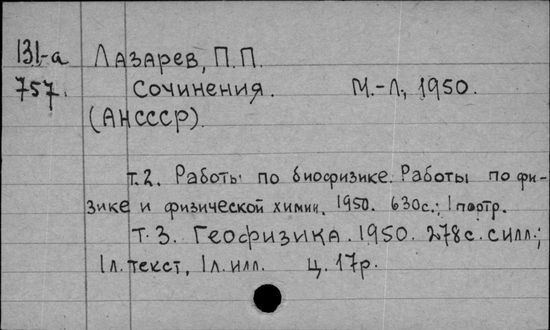 131-а Лазарев, П.П.
757. Сочинения. М.-Л., 1950.
(АНСССР).
т.2. Работы по биофизике. Работы по фи-
зике и физической химии. 1950. 630с.; 1 портр.
Т.3. Геофизика. 1950. 278с. с илл.;
1л. текст, 1л. илл. Ц. 17р.